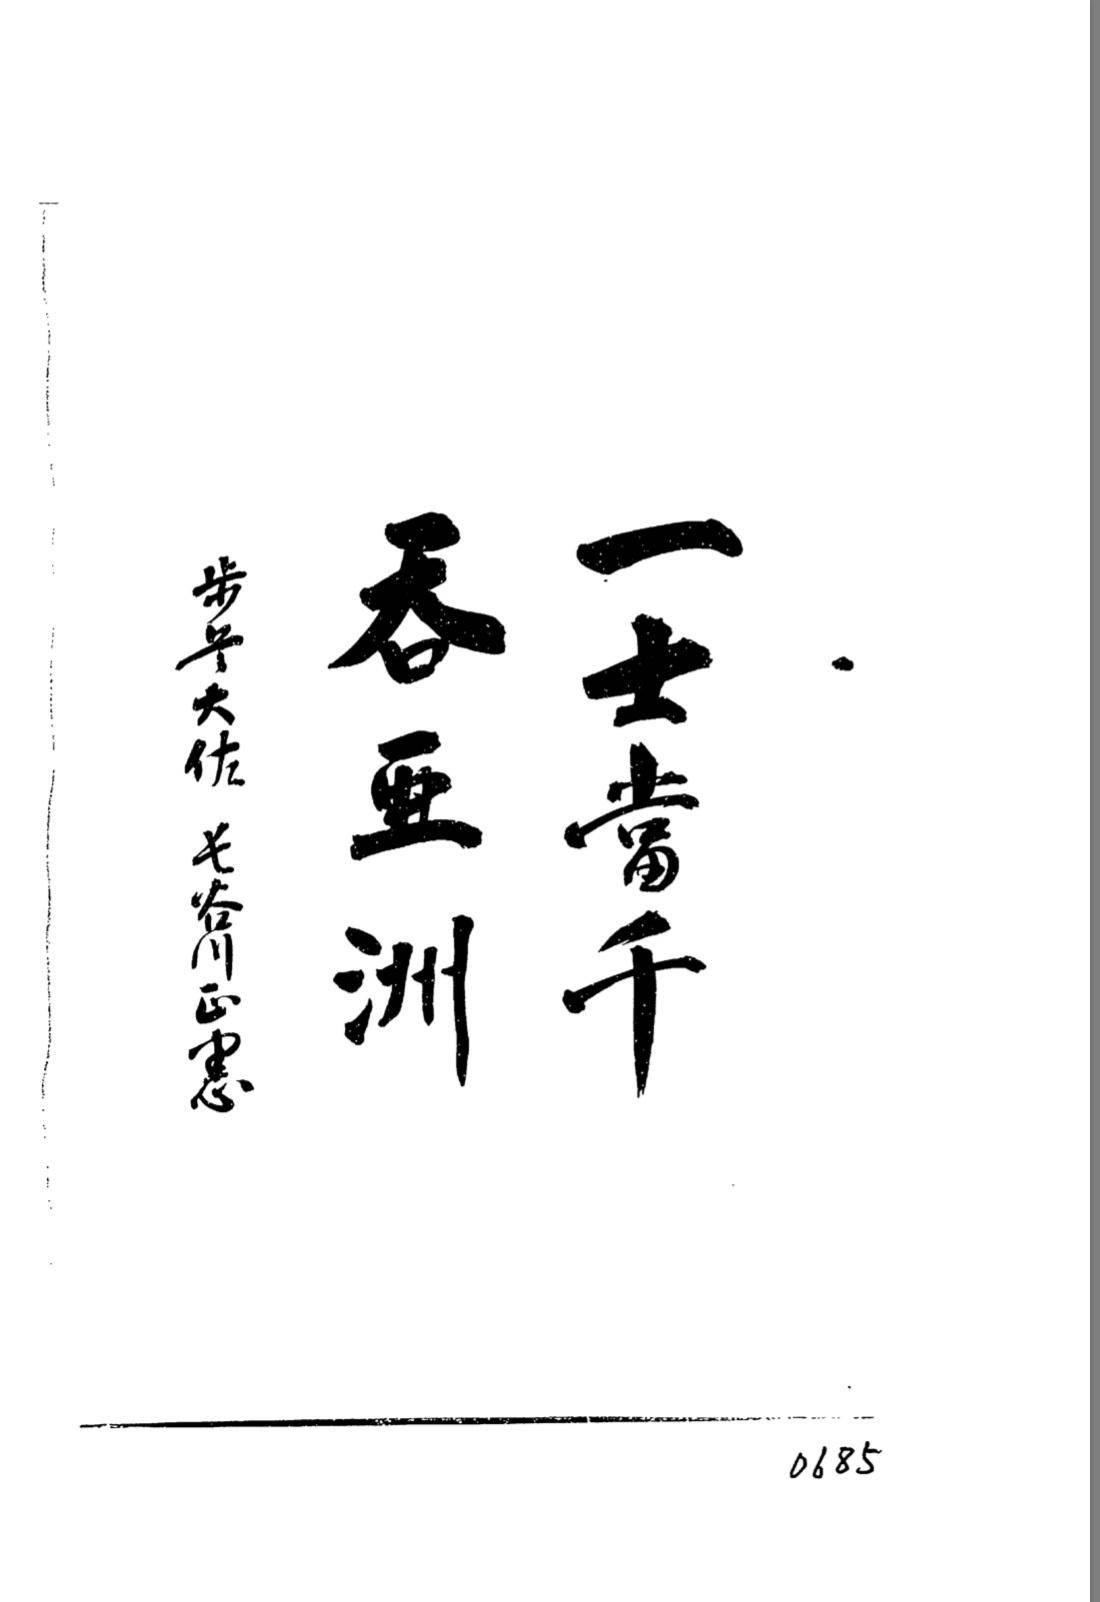 一士當千
呑亜洲
歩兵大佐 長谷川正憲
0685